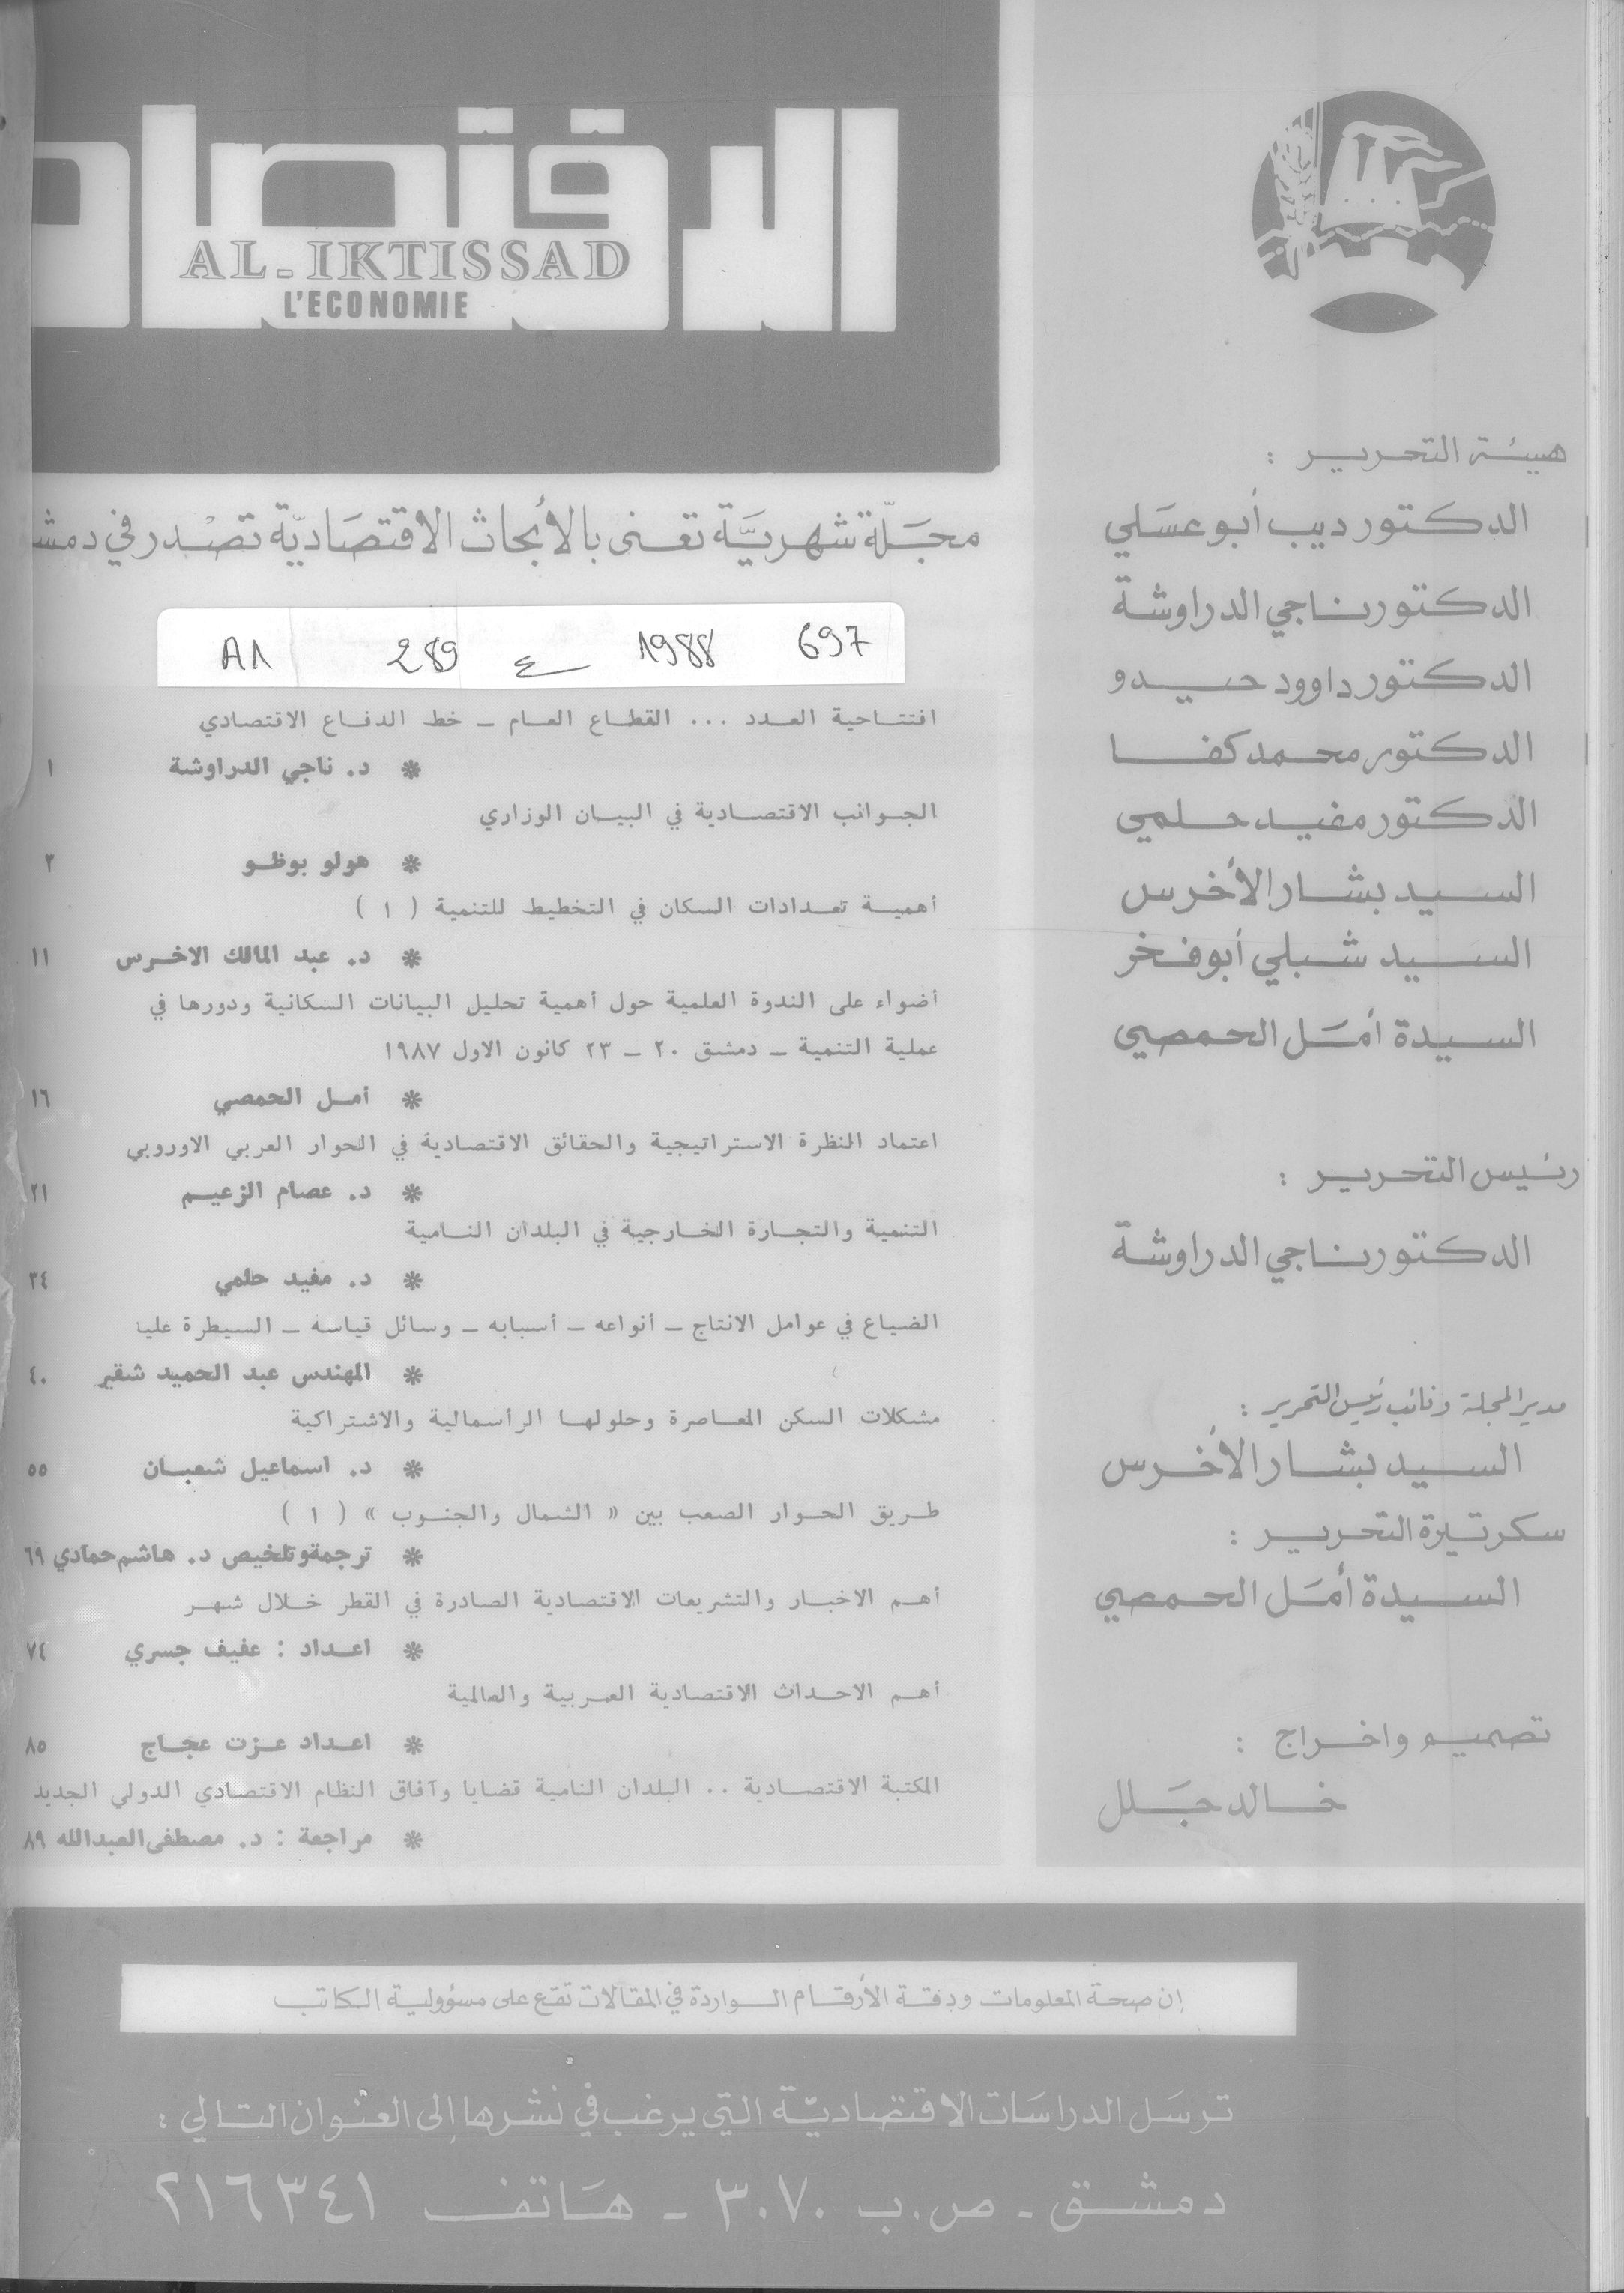 الاقتصاد
AL-IKTISSAD
L'ECONOMIE
مجلّة شهريّة تعنى بالأبحاث الاقتصاديّة تصدر في دمش
A1 289 ع 1988 697
افتتاحية العدد ... القطاع العام ـ خط الدفاع الاقتصادي
* د. ناجي الدراوشة ١
الجوانب الاقتصادية في البيان الوزاري
* هولو بوظو ٣
أهمية تعدادات السكان في التخطيط للتنمية ( ١ )
* د. عبد المالك الاخرس ١١
أضواء على الندوة العلمية حول أهمية تحليل البيانات السكانية ودورها في
عملية التنمية ـ دمشق ٢٠ ـ ٢٣ كانون الاول ١٩٨٧
* أمل الحمصي ١٦
اعتماد النظرة الاستراتيجية والحقائق الاقتصادية في الحوار العربي الاوروبي
* د. عصام الزعيم ٢١
التنمية والتجارة الخارجية في البلدان النامية
* د. مفيد حلمي ٣٤
الضياع في عوامل الانتاج ـ أنواعه ـ أسبابه ـ وسائل قياسه ـ السيطرة عليـ
* المهندس عبد الحميد شقير ٤٠
مشكلات السكن المعاصرة وحلولها الرأسمالية والاشتراكية
* د. اسماعيل شعبان ٥٥
طريق الحوار الصعب بين « الشمال والجنوب » ( ١ )
* ترجمة وتلخيص د. هاشم حمادي ٦٩
أهم الاخبار والتشريعات الاقتصادية الصادرة في القطر خلال شهر
* اعداد : عفيف جسري ٧٤
أهم الاحداث الاقتصادية العربية والعالمية
* اعداد عزت عجاج ٨٥
المكتبة الاقتصادية .. البلدان النامية قضايا وآفاق النظام الاقتصادي الدولي الجديد
* مراجعة : د. مصطفى العبدالله ٨٩
هيئة التحرير :
الدكتور ديب أبو عسلي
الدكتور ناجي الدراوشة
الدكتور داوود حيدو
الدكتور محمد كفا
الدكتور مفيد حلمي
السيد بشار الأخرس
السيد شبلي أبو فخر
السيدة أمل الحمصي
رئيس التحرير :
الدكتور ناجي الدراوشة
مدير المجلة ونائب رئيس التحرير :
السيد بشار الأخرس
سكرتيرة التحرير :
السيدة أمل الحمصي
تصميم واخراج :
خالد جلل
إن صحة المعلومات ودقة الأرقام الواردة في المقالات تقع على مسؤولية الكاتب
ترسل الدراسات الاقتصاديّة التي يرغب في نشرها إلى العنوان التالي :
دمشق ـ ص.ب ٣٠٧٠ ـ هاتف ٢١٦٣٤١